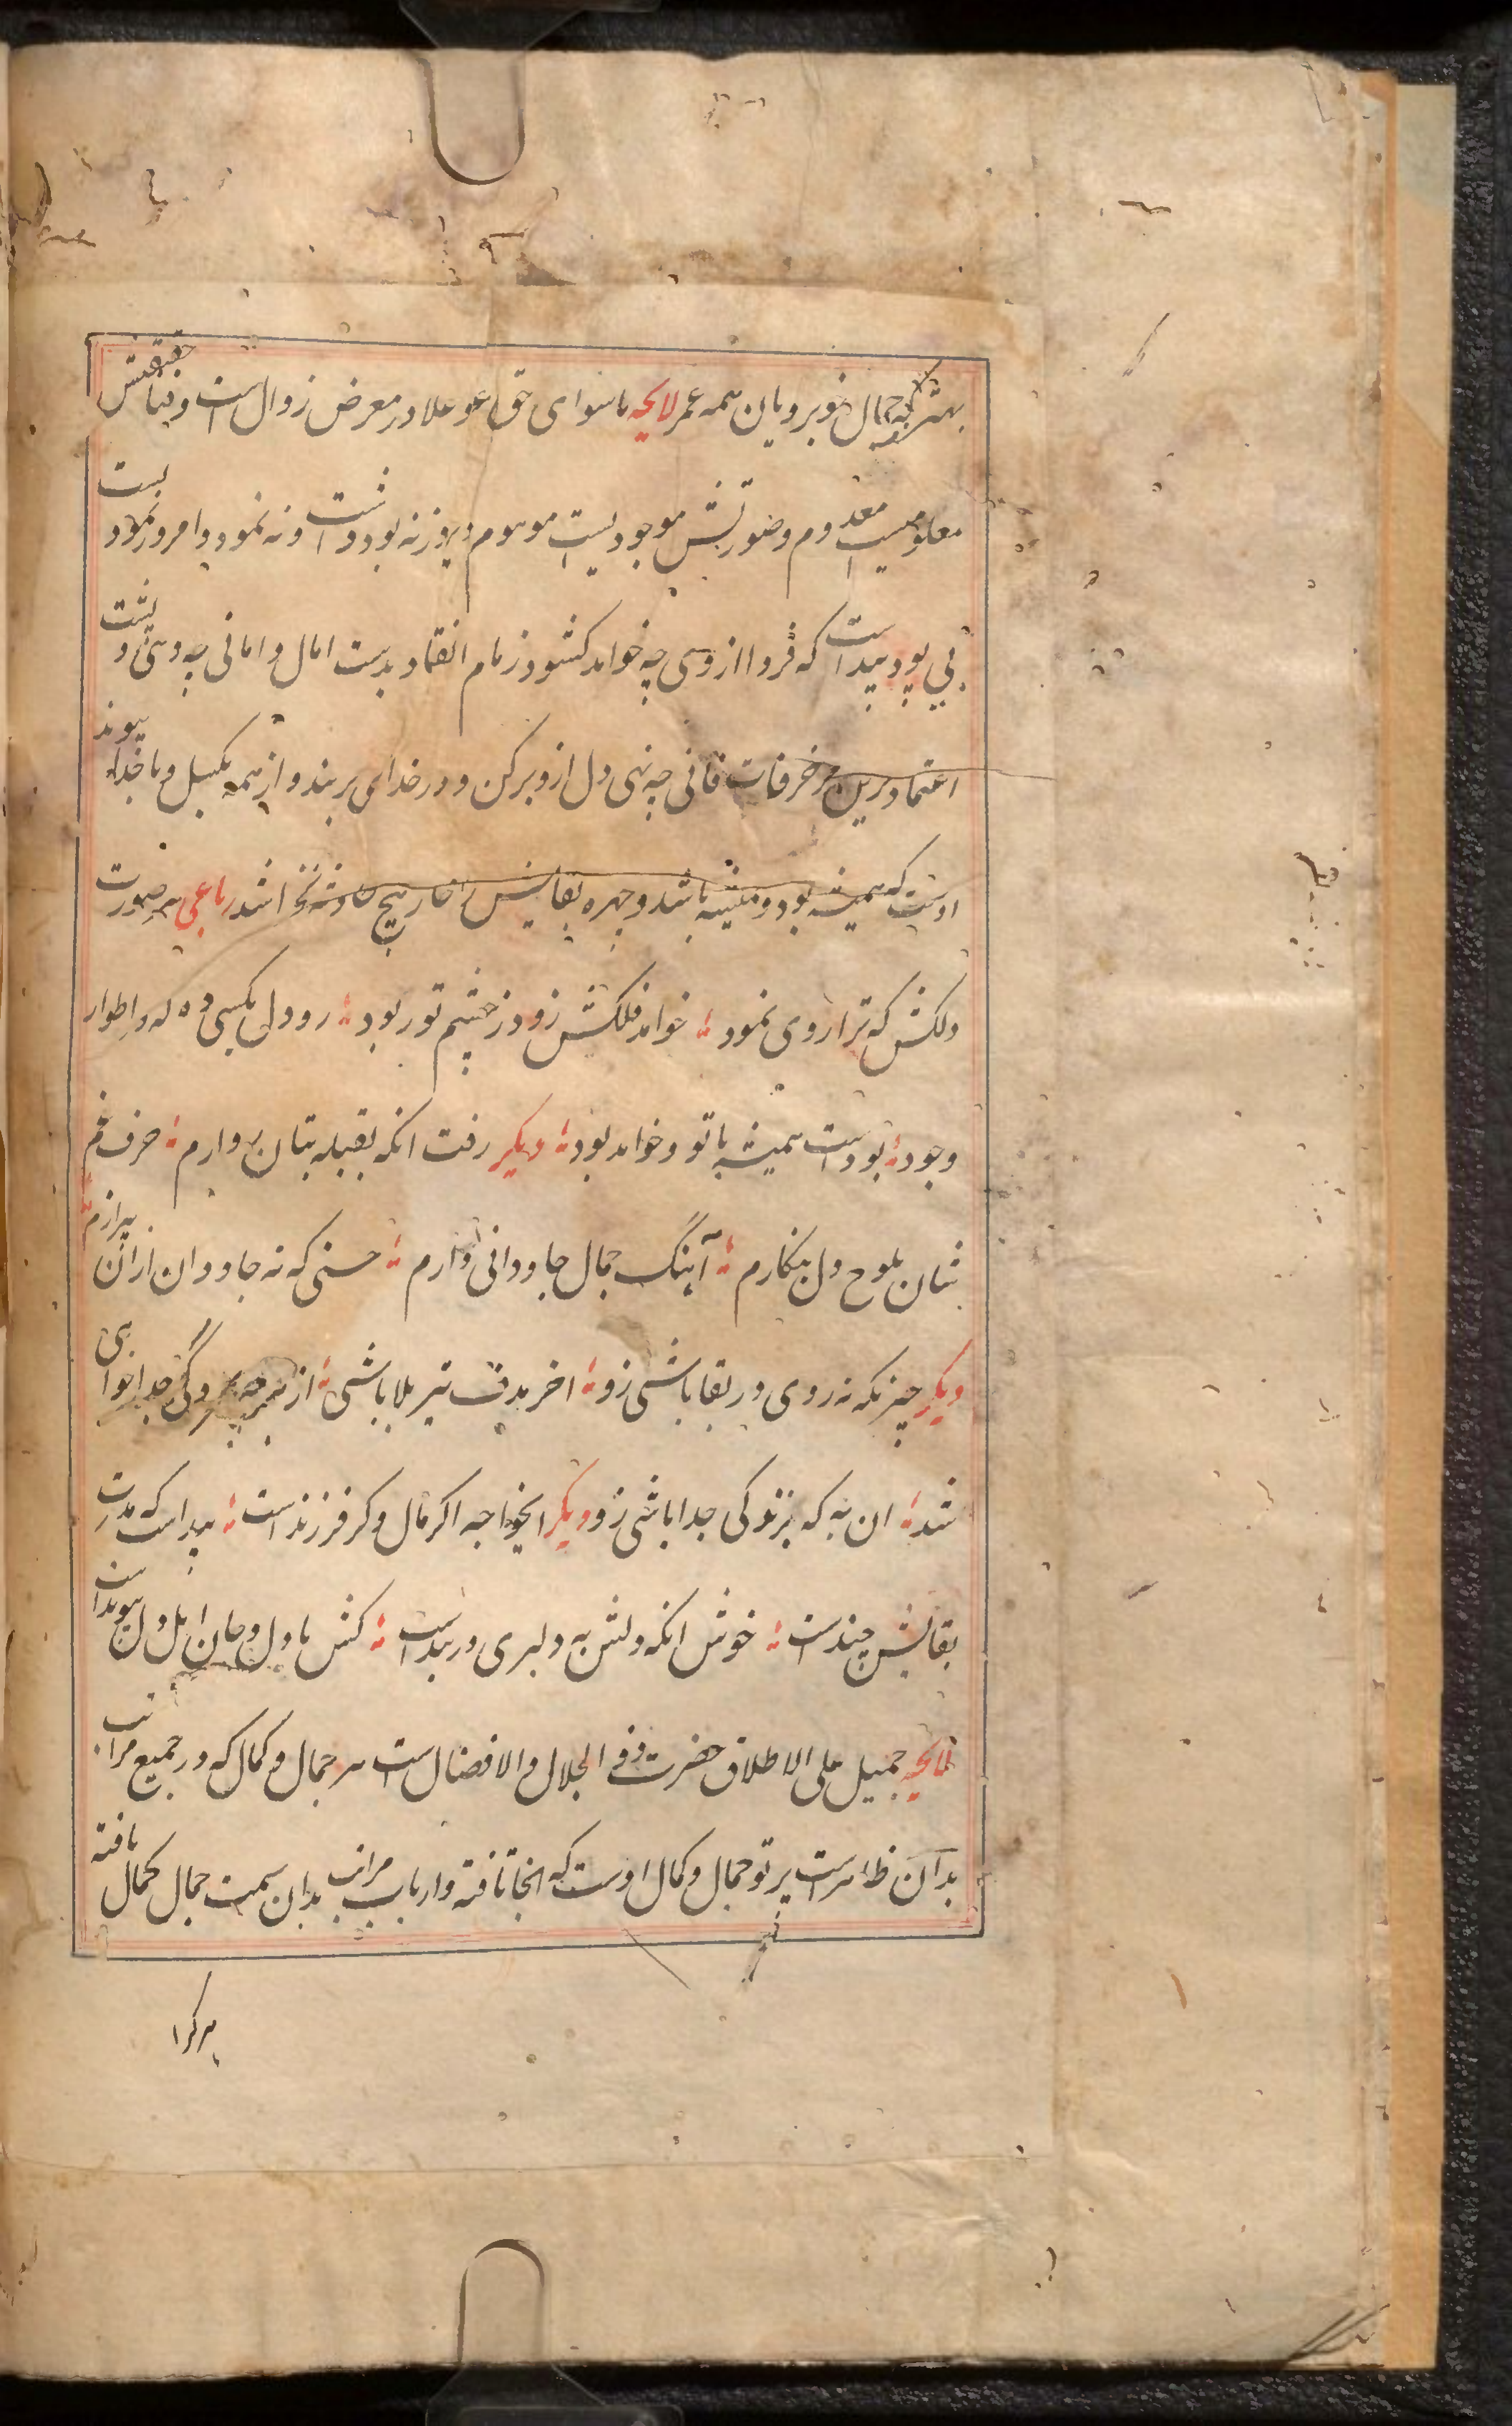 بهتر که جمال خوبرویان همه عمر لایحه ماسوای حق عز و علا در معرض زوال است و فنا حقیقتش
معلومیست معدوم و صورتش موجودیست موهوم دیروز نه بود داشت و نه نمود و امروز نمودیست
بی بود پیداست که فردا از وی چه خواهد کشود زمام انقیاد بدست امال و امانی چه دهی و پشت
اعتماد برین مزخرفات فانی چه نهی دل از و برکن و در خدای بربند و از همه بکسل و با خدا پیوند
اوست که همیشه بود و همیشه باشد و چهره بقایش را خار هیچ حادثه نخراشد رباعی هر صورت
دلکش که ترا روی نمود خواهد فلکش زود ز چشم تو ربود رو دل بکسی ده که در اطوار
وجود بودست همیشه با تو و خواهد بود دیگر رفت انکه بقبله بتان رو ارم حرف غم
شان بلوح دل بنکارم آهنگ جمال جاودانی دارم حسنی که نه جاودان ازان بیزارم
دیگر چیزیکه نه روی در بقا باشی زو اخر هدف تیر بلا باشی از هرچه بمردگی جدا خواهی
شد ان به که بزندگی جدا باشی زو دیگر ایخواجه اکر مال و کر فرزند است پیداست که مدت
بقایش چند است خوش انکه دلش به دلبری در بند است کش با دل و جان اهل دل پیوند است
لایحه جمیل علی الاطلاق حضرت ذی الجلال والافضال است هر جمال و کمال که در جمیع مراتب
بدان ظاهرست پرتو جمال و کمال اوست که انجا تافته و ارباب مراتب بدان سمت جمال کمال یافته
هرکرا